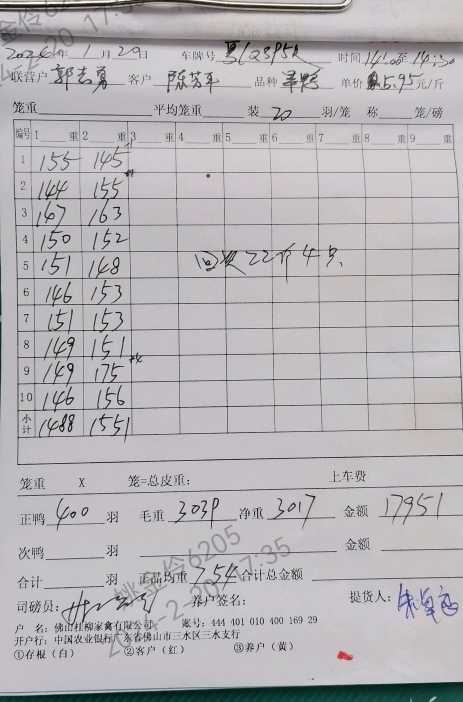 2024年1月29日 车牌号 时间 14:00至14:30
联营户 郭志勇 客户 陈芳平 品种 单价 5.95元/斤
笼重 平均笼重 装 20 羽/笼 称 笼/磅
编号 1 重 2 重 3 重 4 重 5 重 6 重 7 重 8 重 9 重
1 155 145
2 144 155
3 147 163
4 150 152
5 151 148 回收22斤4只
6 146 153
7 151 153
8 149 151
9 149 175
10 146 156
小计 1488 1551
笼重 X 笼=总皮重: 上车费
正鸭 400 羽 毛重 3039 净重 3017 金额 17951
次鸭 羽 金额
合计 羽 正品均重 7.54 合计总金额
司磅员: 养户签名: 提货人:
户 名:佛山桂柳家禽有限公司 账号:444 401 010 400 169 29
开户行:中国农业银行广东省佛山市三水区三水支行
①存根(白) ②客户(红) ③养户(黄)
姚金伶6205
2024-2-20 17:35